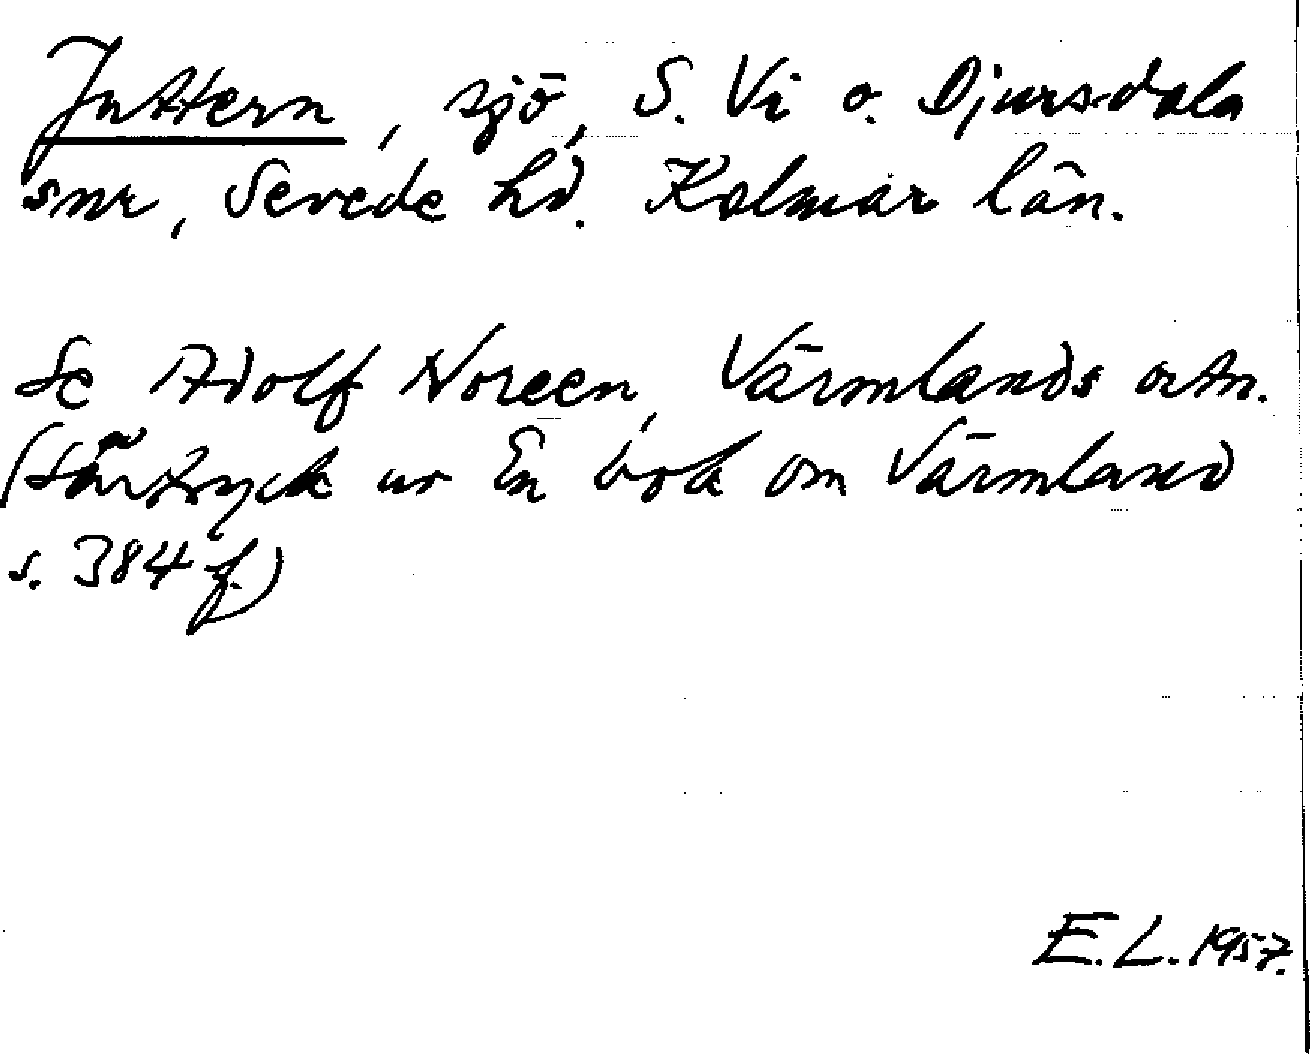 Juttern, sjö, S. Vi o. Djursdala
snr, Sevede hd. Kalmar län.
Se Adolf Noreen, Värmlands ortn.
(särtryck ur En bok om Värmland
s. 384 f.)
E. L. 1957.